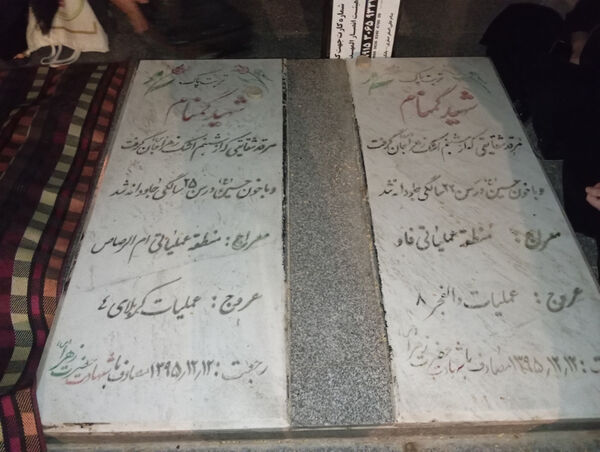 شماره کارت جهت
تربت پاک
شهید گمنام
مرقد شقایقی که از شبنم اشک زهرا جان گرفت
و با خون حسین در سن ۲۵ سالگی جاودانه شد
معراج: منطقه عملیاتی ام الرصاص
عروج: عملیات کربلای ۴
رجعت: ۱۳۹۵,۱۲,۱۲ مصادف با شهادت حضرت زهرا
تربت پاک
شهید گمنام
مرقد شقایقی که از شبنم اشک زهرا جان گرفت
و با خون حسین در سن ۲۲ سالگی جاودانه شد
معراج: منطقه عملیاتی فاو
عروج: عملیات والفجر ۸
: ۱۳۹۵,۱۲,۱۲ مصادف با شهادت حضرت زهرا